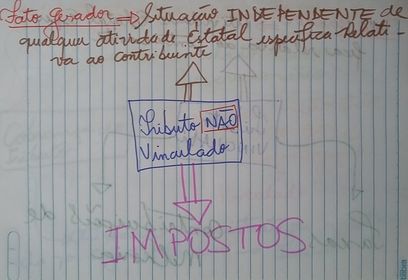 Fato gerador => Situação INDEPENDENTE de
qualquer atividade Estatal específica relati-
va ao contribuinte
Tributo NÃO
Vinculado
IMPOSTOS